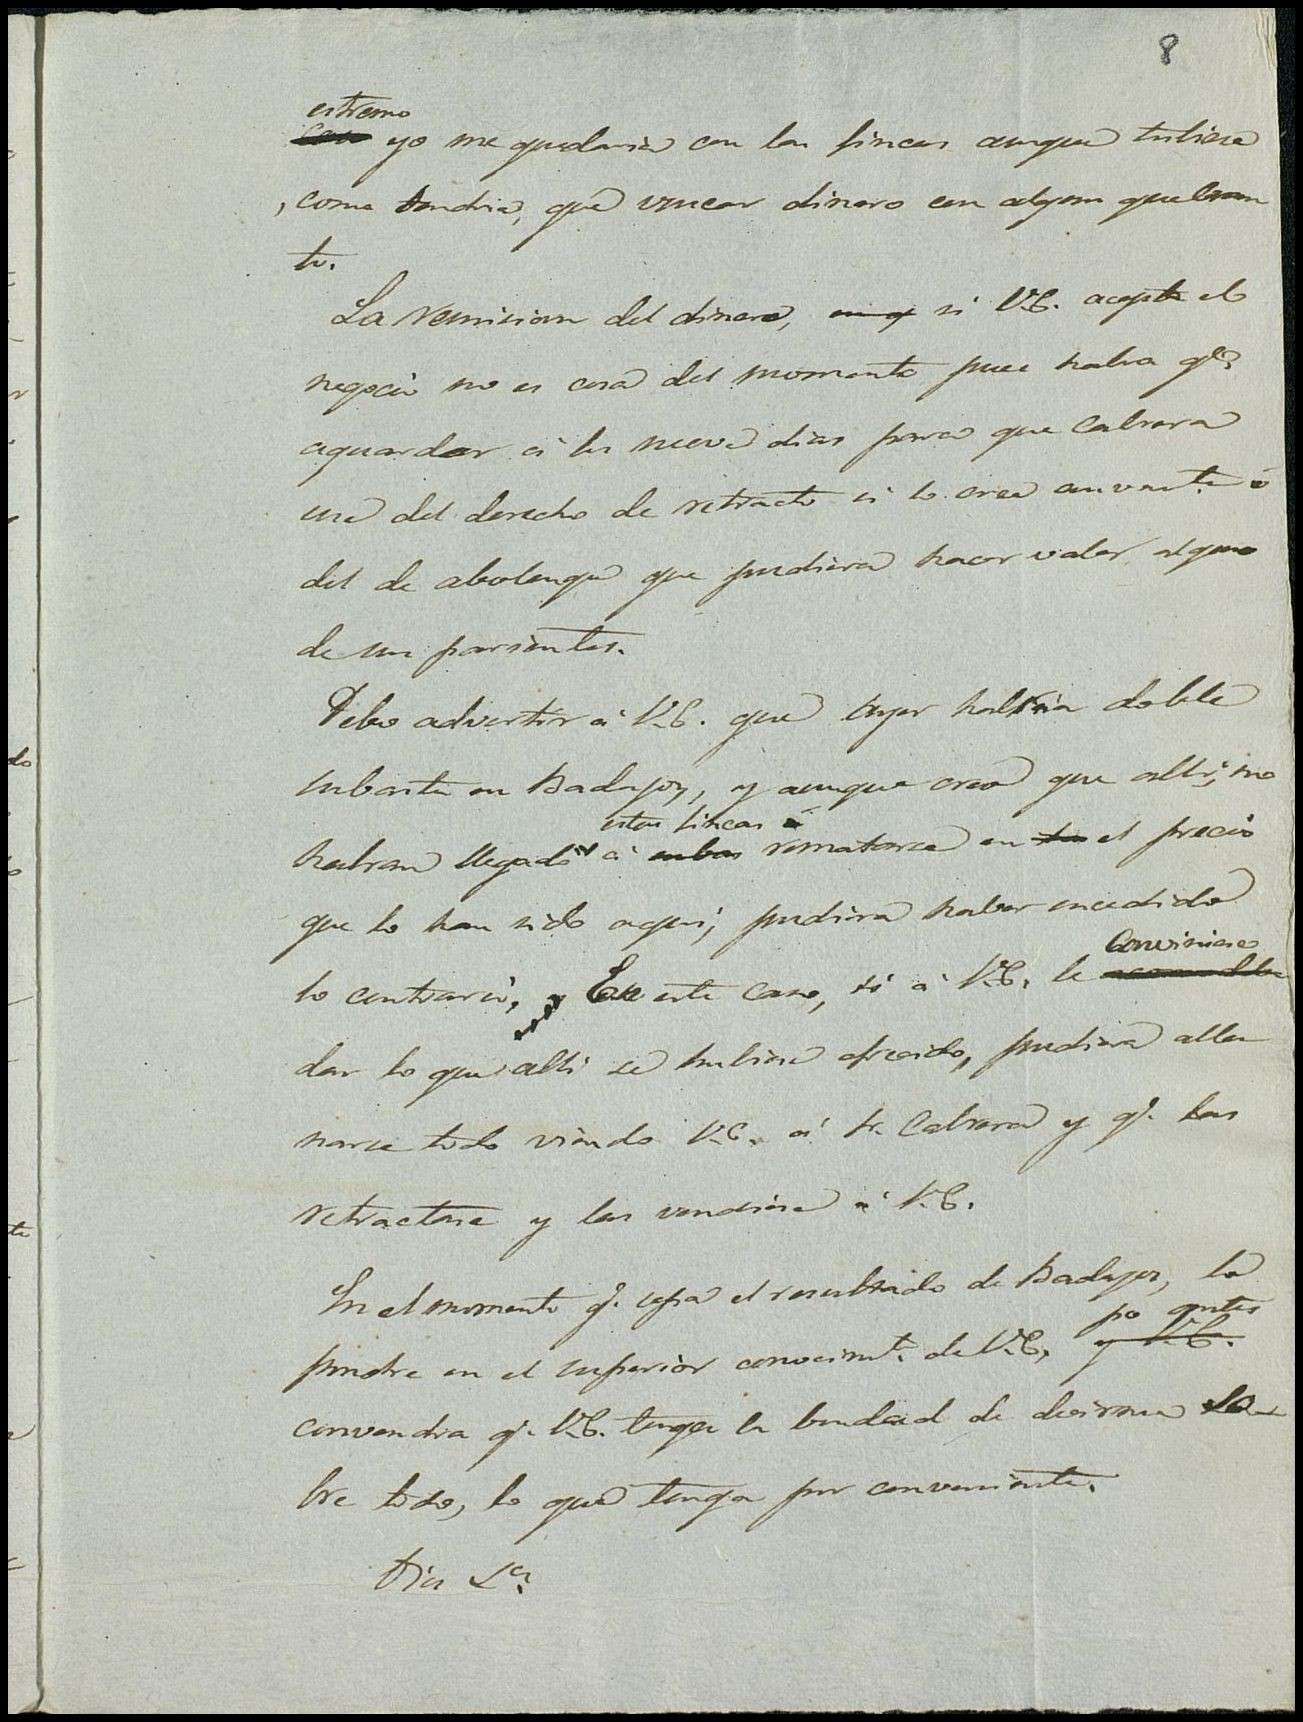 8
estremo
caso yo me quedaria con las fincas aunque tubiese
, como tendria, que buscar dinero con algun quebran
to.
La remision del dinero, si V.E. acepta el
negocio no es cosa del momento pues habra qe.
aguardar á los nueve dias para que Cabrera
use del derecho de retracto si lo cree convente. ó
del de abolengo que pudiera hacer valer alguno
de sus parientes.
Debo advertir á V.E. que ayer habria doble
subasta en Badajoz, y aunque creo que alli, no
estas fincas
habran llegado á rematarse en el precio
que lo han sido aqui, pudiera haber sucedido
lo contrario, En este caso, si á V.E. le
conviniese
dar lo que alli se hubiese ofrecido, pudiera alla
narse todo viendo V.E. á Sr. Cabrera y qe. las
retractase y las vendiese á V.E.
En el momento qe. sepa el resultado de Badajoz, lo
po antes
pondre en el superior conocimto. de V.E, y V.E.
convendra qe. V.E. tenga la bondad de decirme so
bre todo, lo que tenga por conveniente.